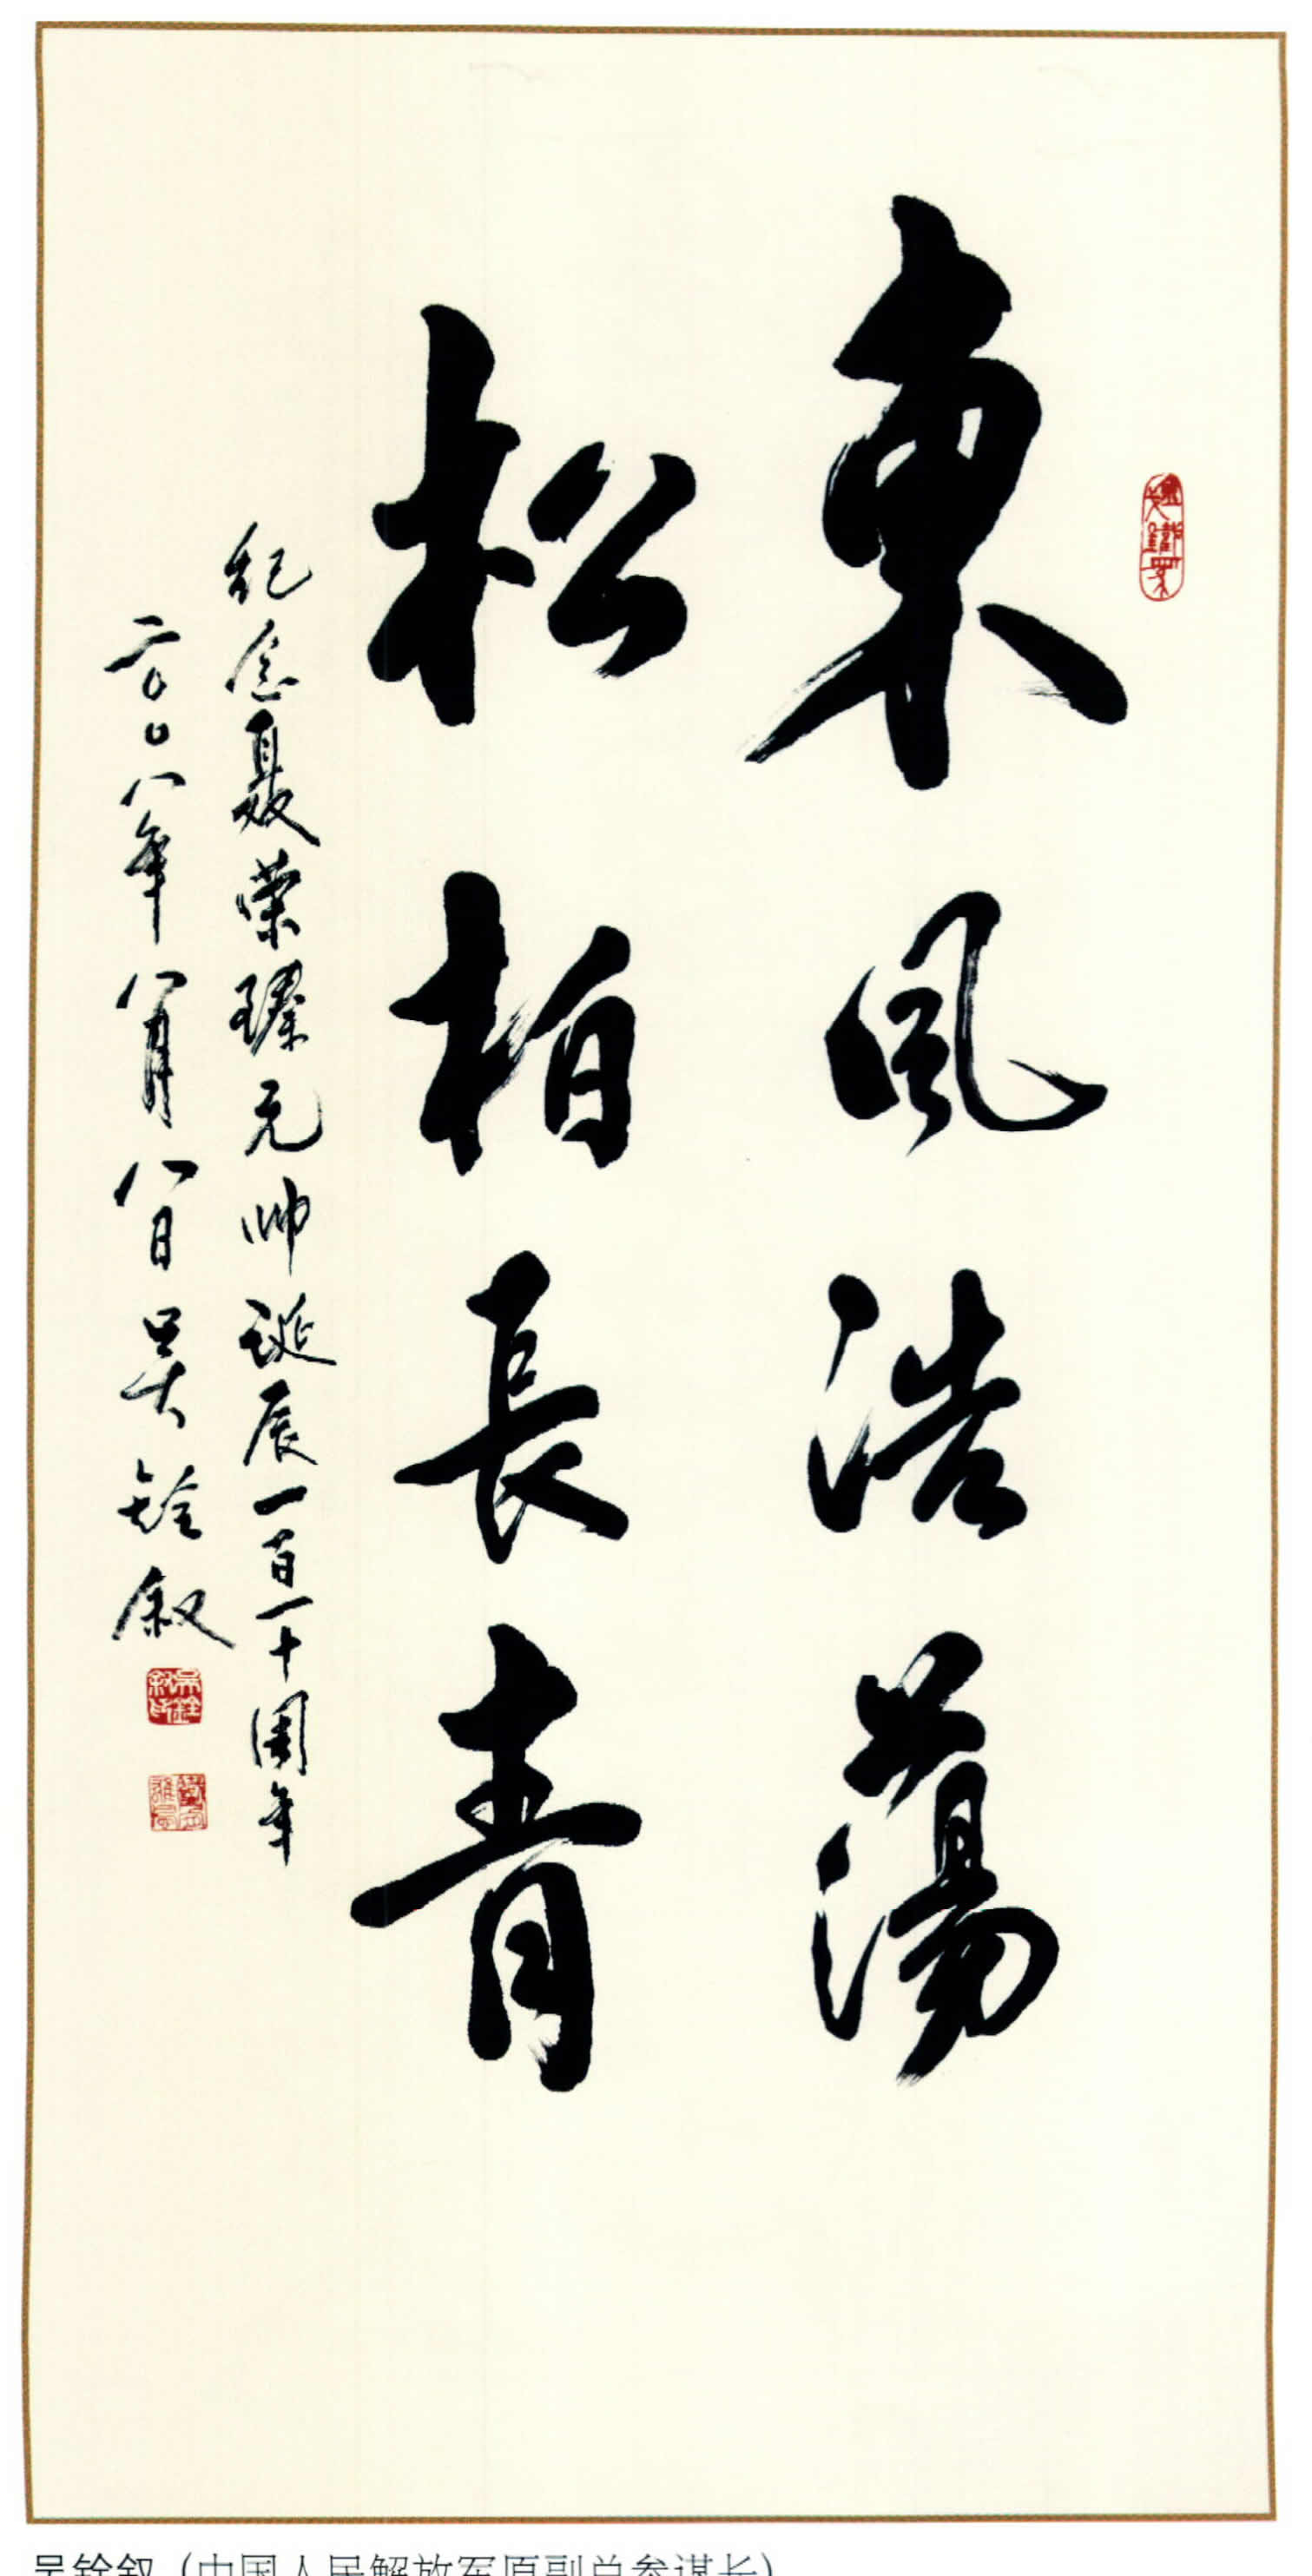 東風浩蕩
松柏長青
纪念聂荣臻元帅诞辰一百一十周年
二〇〇八年八月八日 吴铨叙
吴铨叙印
吴铨叙 (中国人民解放军原副总参谋长)